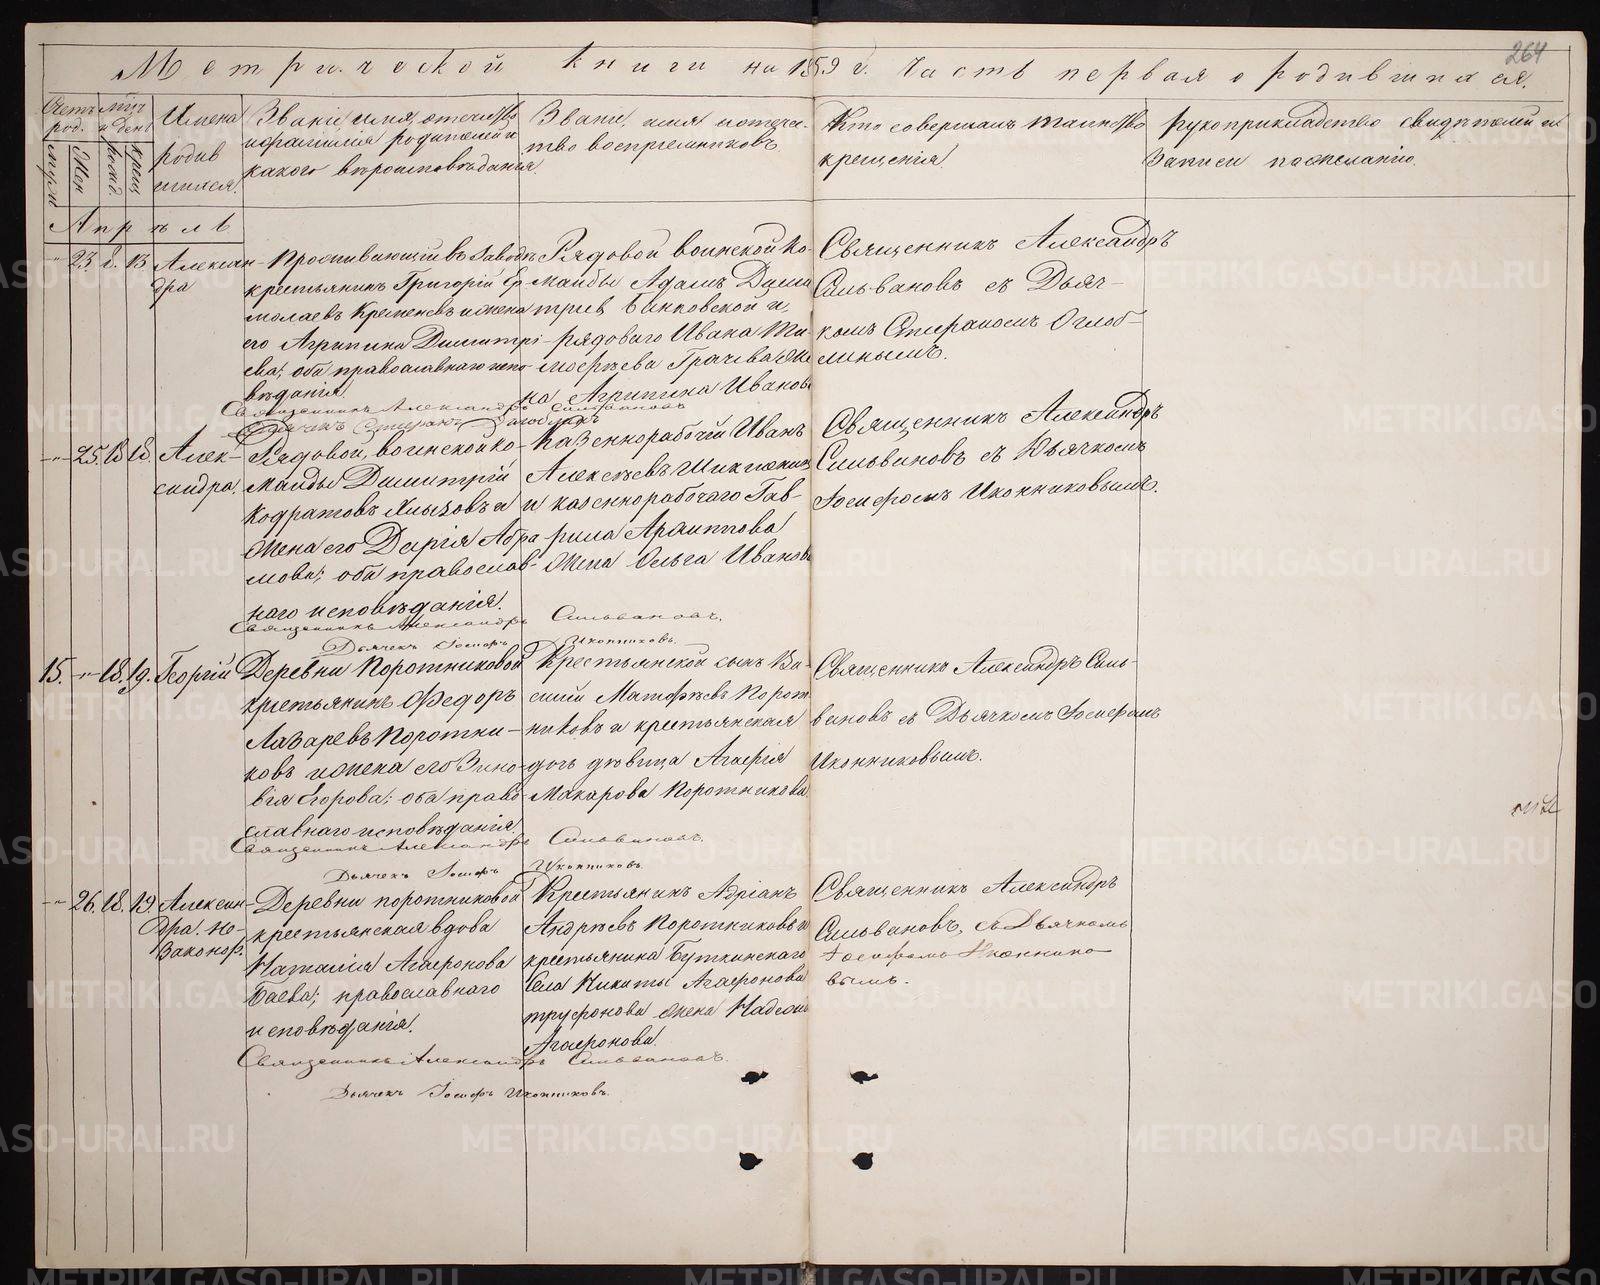 264
Метрической книги на 1859 г. Часть первая о родившихся.
Счетъ род.
муж
жен
Мѣс. и день
рожд.
крещ.
Имена
родив
шихся.
Званіе, имя, отчество
и фамилія родителей и
какого вѣроисповѣданія.
Званіе, имя и отече-
тво воспріемниковъ.
Кто совершалъ таинство
крещенія
рукоприкладство свидѣтелей и
записи по желанію.
Апрѣль
23. 8. 13
Алексан-
дра
Проживающій въ Заводѣ
крестьянинъ Григорій Ер-
молаевъ Кременевъ и жена
его Агрипина Димитрі-
ева; оба православнаго испо-
вѣданія.
Рядовой воинской ко-
манды Адамъ Дими
тріев Банковской и
рядоваго Ивана Ти-
мофѣева Грачева же
на Агрипина Иванова
Священникъ Александръ
Сильвановъ съ Дьяч-
комъ Спиридономъ Оглоб-
линымъ.
Священникъ Александръ Сильвановъ
25. 18 18.
Алек-
сандра.
Рядовой, воинской ко-
манды Димитрій
Кодратовъ Языковъ и
жена его Дарія Абра
мова; оба православ-
ного исповѣданія.
Казеннорабочій Иванъ
Алексѣевъ
и казеннорабочаго Гав-
рила Архиппова
жена Ольга Иванова
Священникъ Александръ
Сильвановъ съ Дьячкомъ
Іосифомъ Иконниковымъ.
Священникъ Александръ Сильвановъ.
Дьячекъ Іосифъ Иконниковъ.
15. 18. 19. Георгій
Деревни Поротниковой
крестьянинъ Федоръ
Лазаревъ Поротни-
ковъ и жена его Зино-
вія Егорова; оба право-
славнаго исповѣданія.
Крестьянской сынъ Ва-
силій Матфѣевъ Порот
никовъ и крестьянская
дочь дѣвица Агафія
Макарова Поротникова
Священникъ Александръ Силь-
вановъ съ Дьячкомъ Іосифомъ
Иконниковымъ.
Священникъ Александръ Сильвановъ.
Дьячекъ Іосифъ Иконниковъ.
26. 18. 19. Алексан-
дра. Не-
законор.
Деревни поротниковой
крестьянская вдова
Наталія Агафонова
Баева; православнаго
исповѣданія.
Крестьянинъ Адріанъ
Андрѣевъ Поротниковъ и
крестьянина Буткинскаго
Села Никиты Агафонова
трифонова жена Надежда
Агафонова.
Священникъ Александръ
Сильвановъ, съ Дьячкомъ
Іосифомъ Иконнико
вымъ.
Священникъ Александръ Сильвановъ.
Дьячекъ Іосифъ Иконниковъ.
METRIKI.GASO-URAL.RU